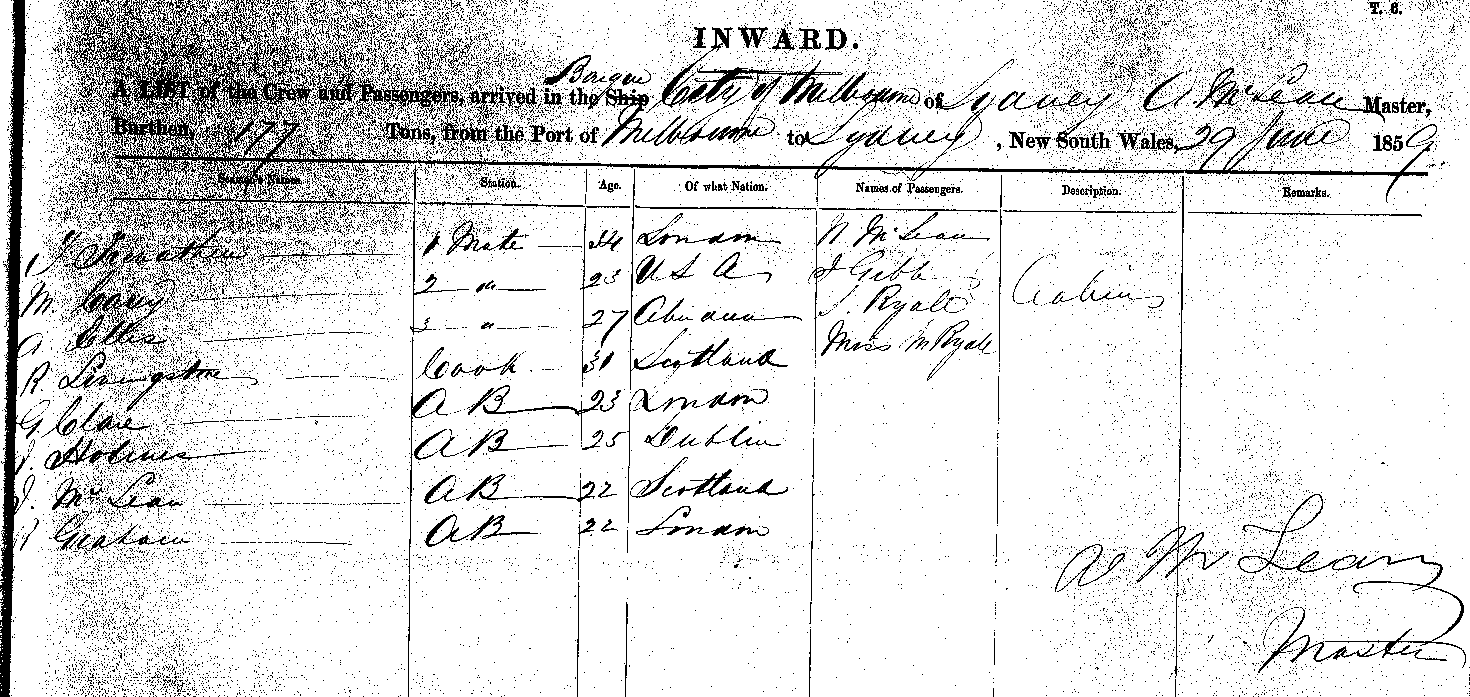 T. 6.
INWARD.
Barque
A LIST of the Crew and Passengers, arrived in the Ship City of Melbourne of Sydney A McLean Master,
Burthen, 177 Tons, from the Port of Melbourne to Sydney, New South Wales, 29 June 1859.
Station. Age. Of what Nation. Names of Passengers. Description. Remarks.
1 Mate London N McLean
M. Carey 2 " 23 U S A J Gibb Cabin
A Ellis 3 " 27 S. Ryall
R Livingstone Cook 31 Scotland Miss M Ryall
G Clare A B 23 London
Holmes A B 25 Dublin
J. McLean A B 22 Scotland
Graham A B 22 London
A McLean
Master